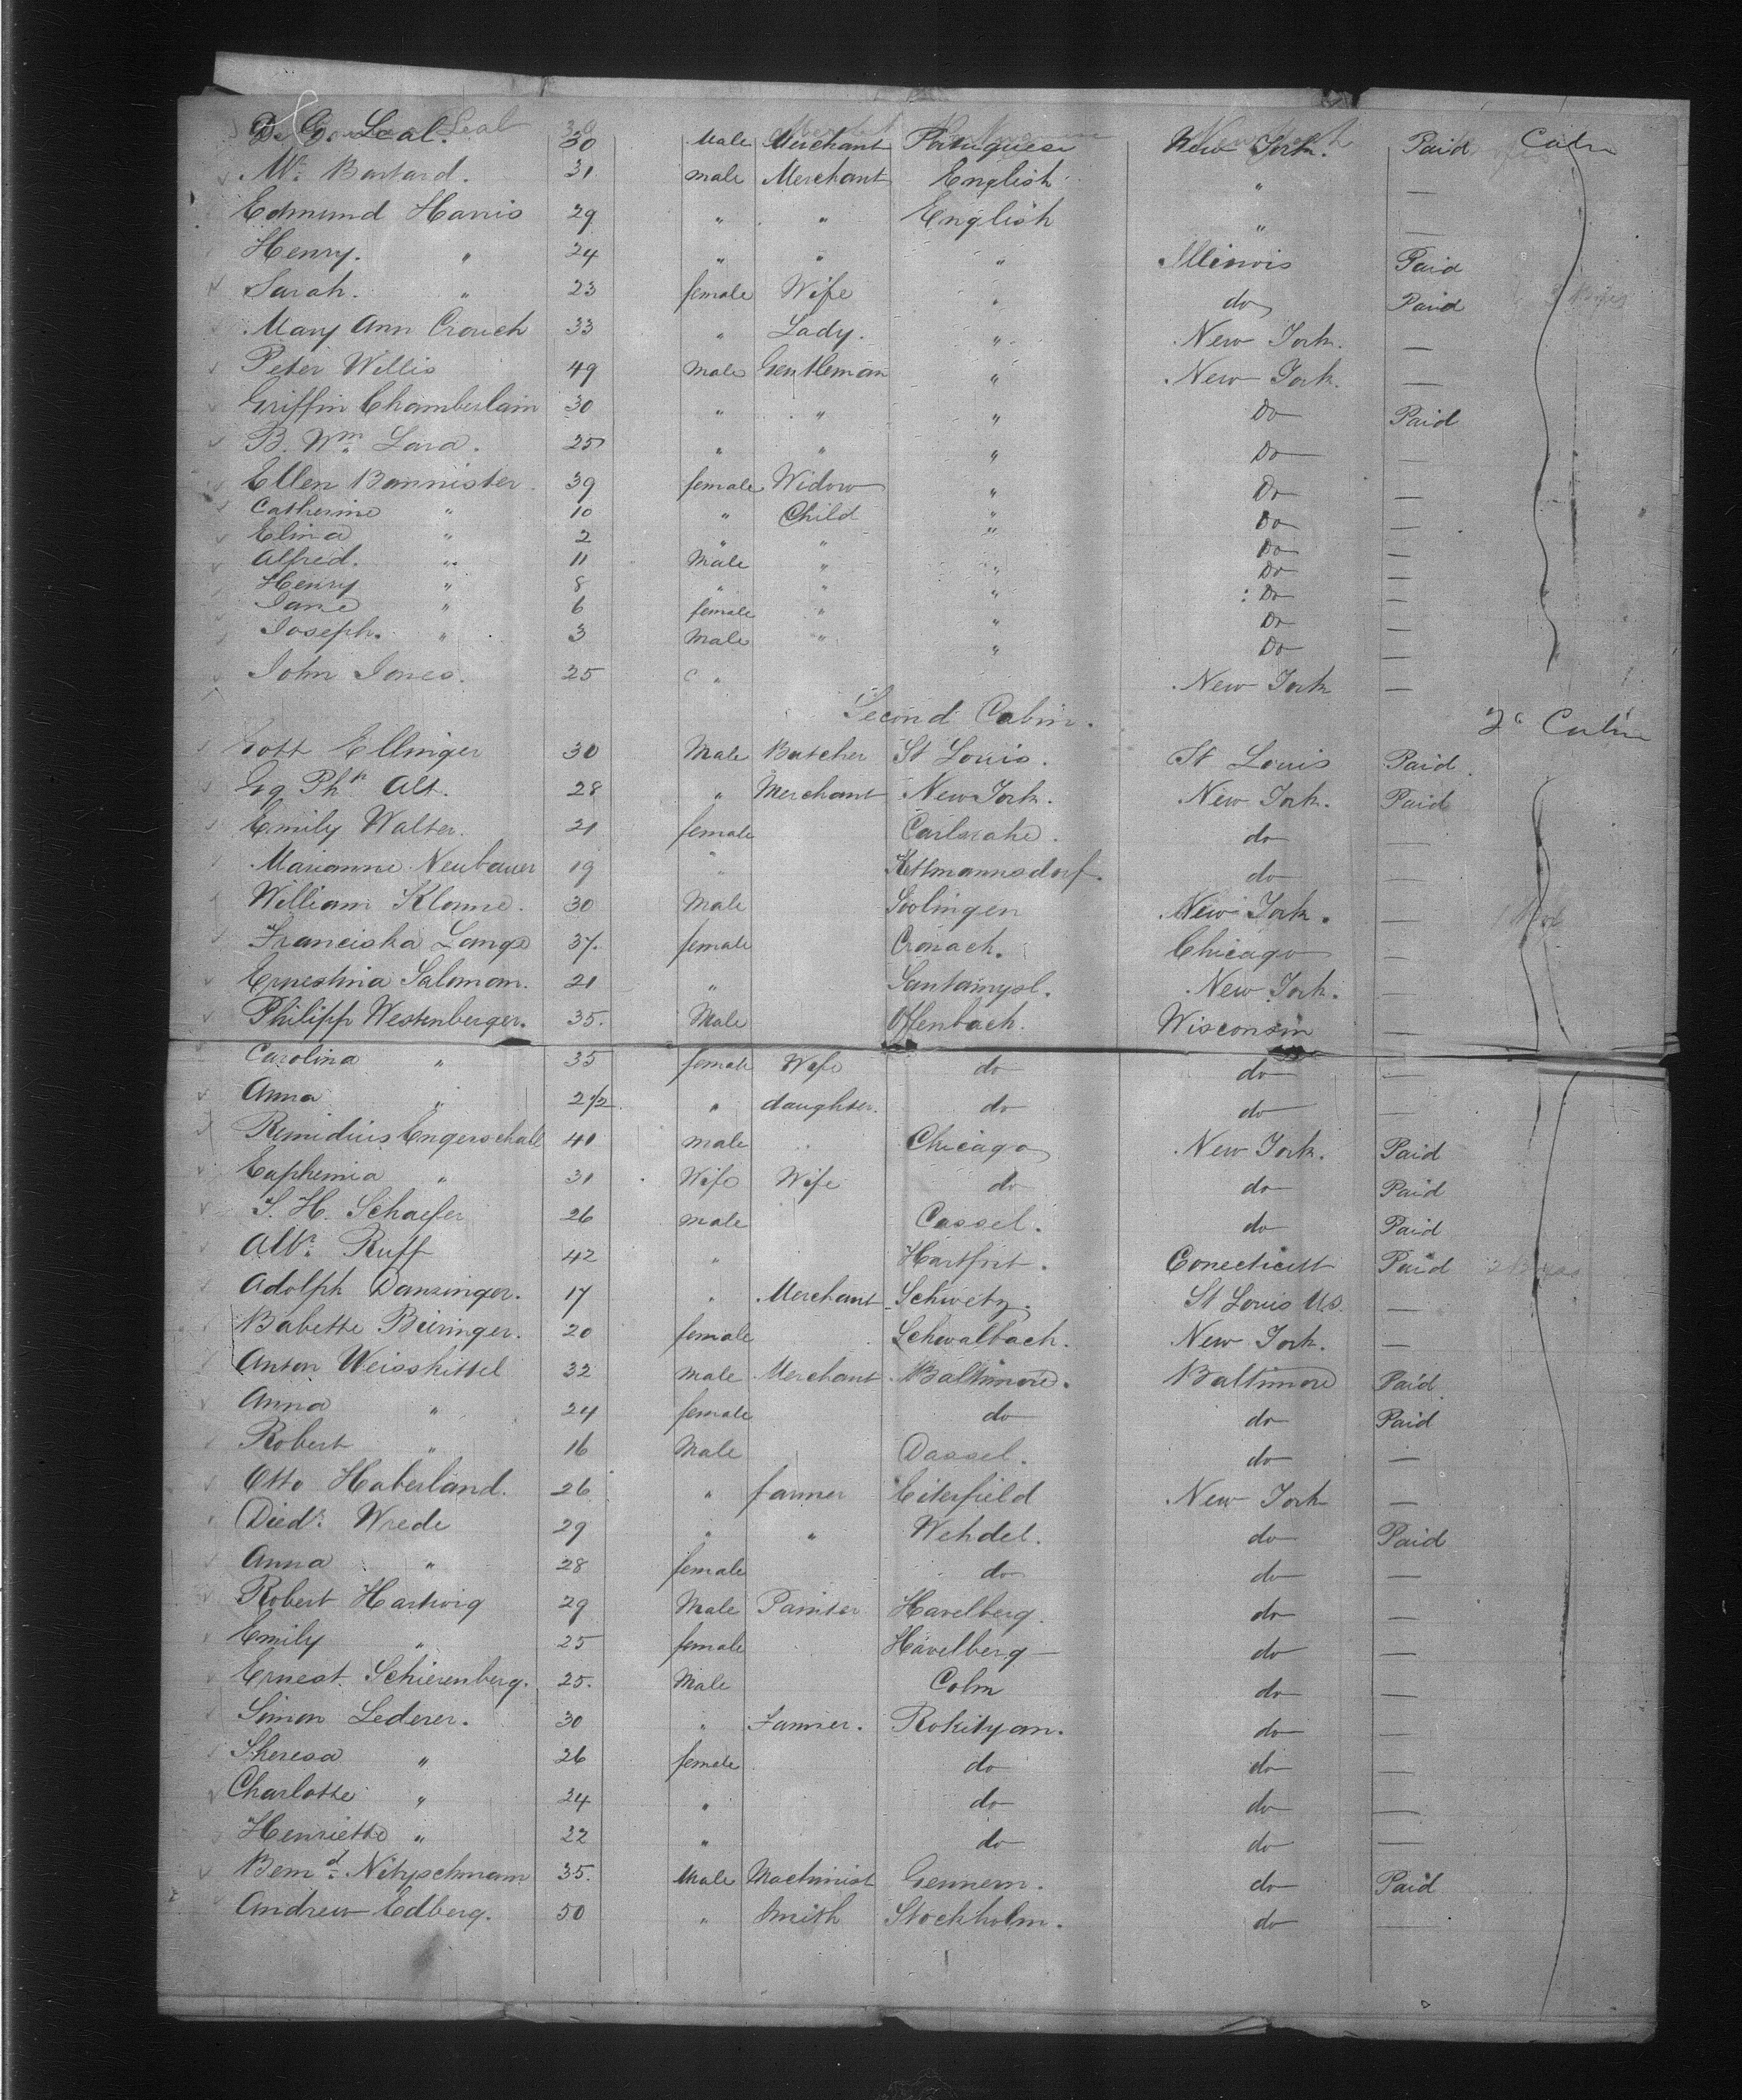 D. G. Leal. 30 Male Merchant Portuguese New York. Paid Cabin
Mr. Bastard. 31 male Merchant English " —
Edmund Harris 29 " " English " —
Henry. " 24 " " " Illinois Paid
Sarah. " 23 female Wife " do Paid
Mary Ann Crouch 33 " Lady. " New York. —
Peter Willis 49 Male Gentleman " New York. —
Griffin Chamberlain 30 " " " Do Paid
B. Wm. Lara. 25 " " " Do —
Ellen Bannister 39 female Widow " Do —
Catherine " 10 " Child " Do —
Elina " 2 " " " Do —
Alfred. " 11 Male " " Do —
Henry " 8 " " " Do —
Jane " 6 female " " Do —
Joseph. " 3 Male " " Do —
John Jones. 25 " New York —
Second Cabin. 2d Cabin
Gott Ellinger 30 Male Butcher St Louis. St Louis Paid.
Gg. Phr Alt. 28 " Merchant New York. New York. Paid
Emily Walter. 21 female Carlsrahe. do —
Marianne Neubauer 19 " Kettmannsdorf. do —
William Klonne. 30 Male Soolingen New York. —
Franciska Lange 37. female Cronach. Chicago —
Ernestina Salomon. 21 " Santomysl. New York. —
Philipp Westenberger. 35. Male Offenbach. Wisconsin —
Carolina " 35 female Wife do do —
Anna " 2 1/2 " daughter. do do —
Remidius Engerschall 40 male Chicago New York. Paid
Euphemia " 31 Wife Wife do do Paid
S. H. Schaefer 26 male Cassel. do Paid
Altr. Ruff 42 " Hartfort. Conecticutt Paid
Adolph Danzinger. 17 " Merchant Schwetz. St Louis Us. —
Babette Bieringer. 20 female Schwalbach. New York. —
Anton Weisskittel 32 male Merchant Baltimore. Baltimore Paid.
Anna " 24 female do do Paid
Robert " 16 Male Dassel. do —
Otto Haberland. 26 " farmer Eiterfield New York —
Diedr. Wrede 29 " " Wehdel. do Paid
Anna " 28 female do do —
Robert Hartwig 29 Male Painter Havelberg. do —
Emily " 25 female Havelberg do —
Ernest. Schierenberg. 25. Male Coln do —
Simon Lederer. 30 " Farmer. Rokityan. do —
Theresa " 26 female do do —
Charlotte " 24 " do do —
Henriette " 22 " do do —
Bernd. Nitzschmann 35. Male Machinist Gennem. do Paid
Andrew Edberg. 50 " Smith Stockholm. do —